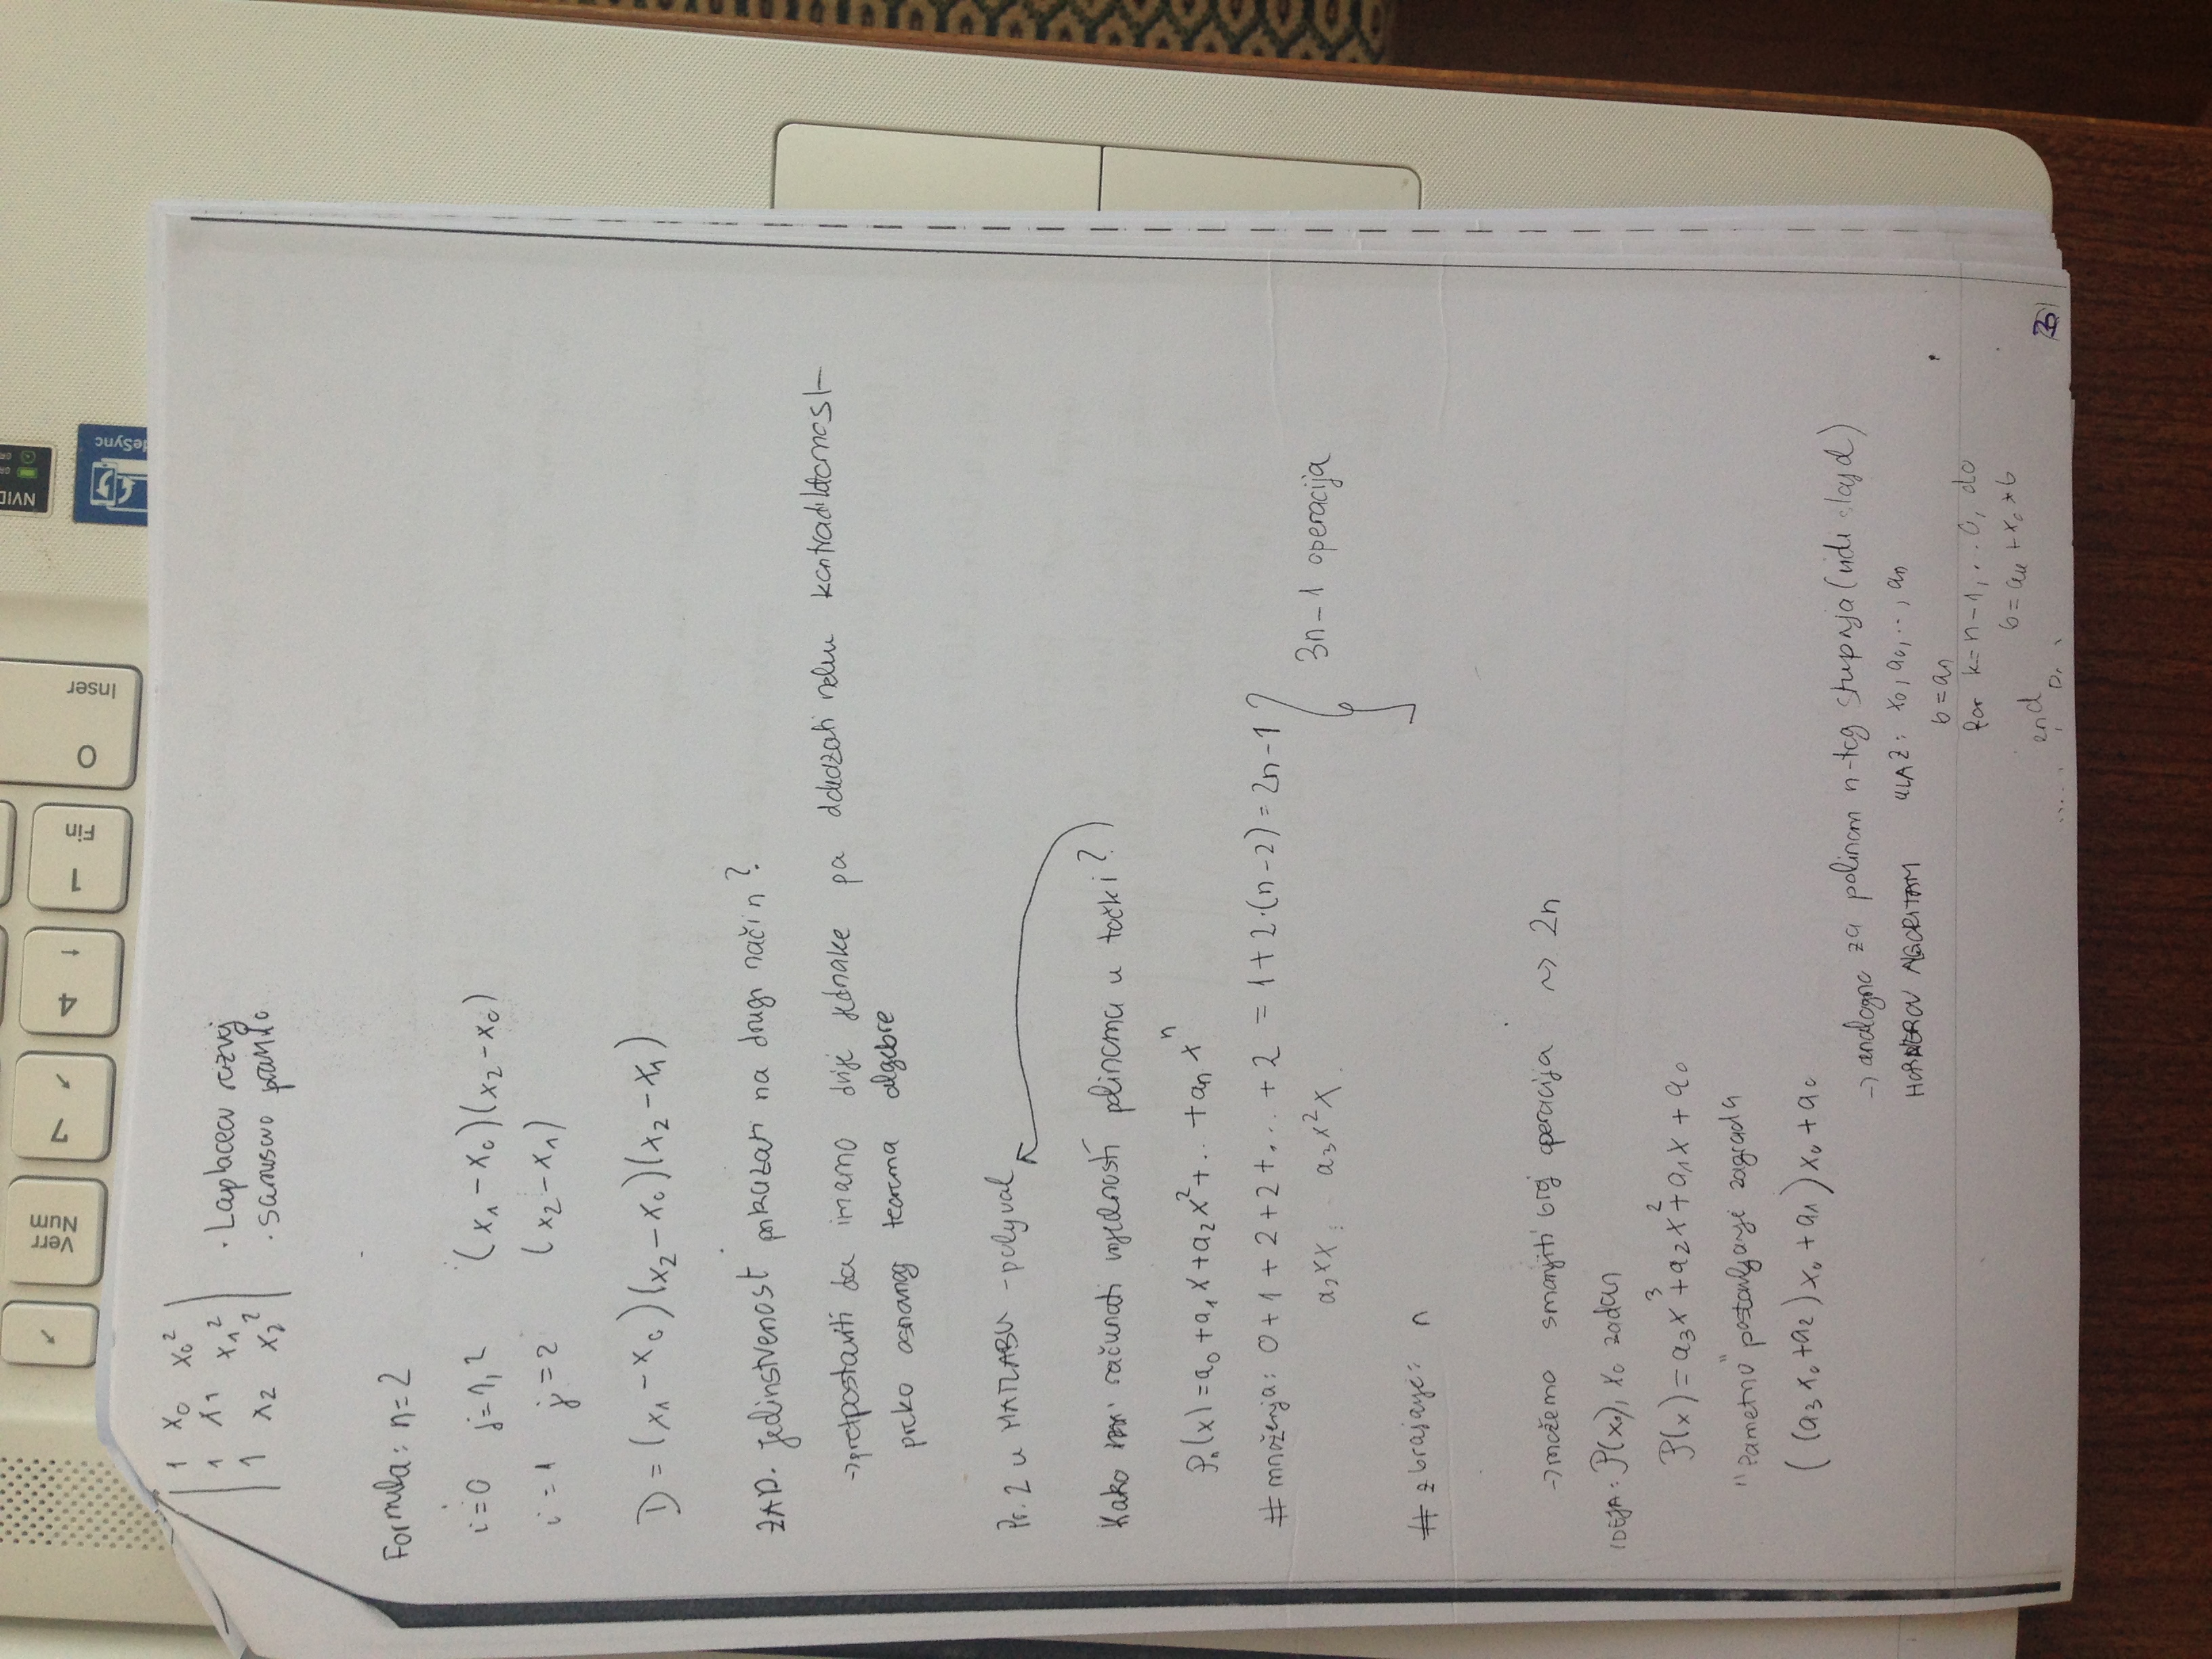 ↖
Verr Num
7 ↖
4 ←
1 Fin
0 Inser
NVID
leSync
| 1 x₀ x₀² |
| 1 x₁ x₁² | · Laplaceov razvoj
| 1 x₂ x₂² | · Sarrusovo pravilo
Formula: n=2
i=0 j=1,2 (x₁-x₀)(x₂-x₀)
i=1 j=2 (x₂-x₁)
D=(x₁-x₀)(x₂-x₀)(x₂-x₁)
ZAD. Jedinstvenost prikazati na drugi način?
→ pretpostaviti da imamo dvije jednake pa dokazati neku kontradiktornost
preko osnovnog teorema algebre
Pr. 2 u MATLABU - polyval
Kako računati vrijednosti polinoma u točki?
Pₙ(x)=a₀+a₁x+a₂x²+..+aₙxⁿ
# množenja: 0+1+2+2+...+2 = 1+2·(n-2)=2n-1
a₂xx a₃x²x
3n-1 operacija
# zbrajanje: n
→ možemo smanjiti broj operacija ~> 2n
IDEJA: P(x₀), x₀ zadan
P(x)=a₃x³+a₂x²+a₁x+a₀
"Pametno" postavljanje zagrada
((a₃x₀+a₂)x₀+a₁)x₀+a₀
→ analogno za polinom n-tog stupnja (vidi slajd)
HORNEROV ALGORITAM ULAZ: x₀, a₀,.., aₙ
b=aₙ
for k=n-1,...0, do
b=aₖ+x₀*b
end